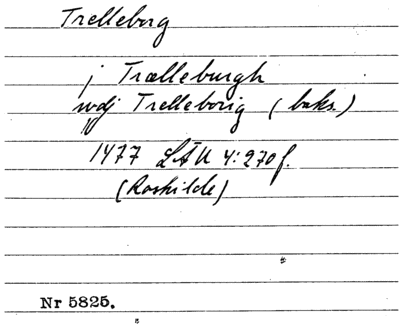 Trelleborg
j Trælleburgh
wdj Trelleborig (baks.)
1477 LÄU 4:270 f.
(Roskilde)
Nr 5825.